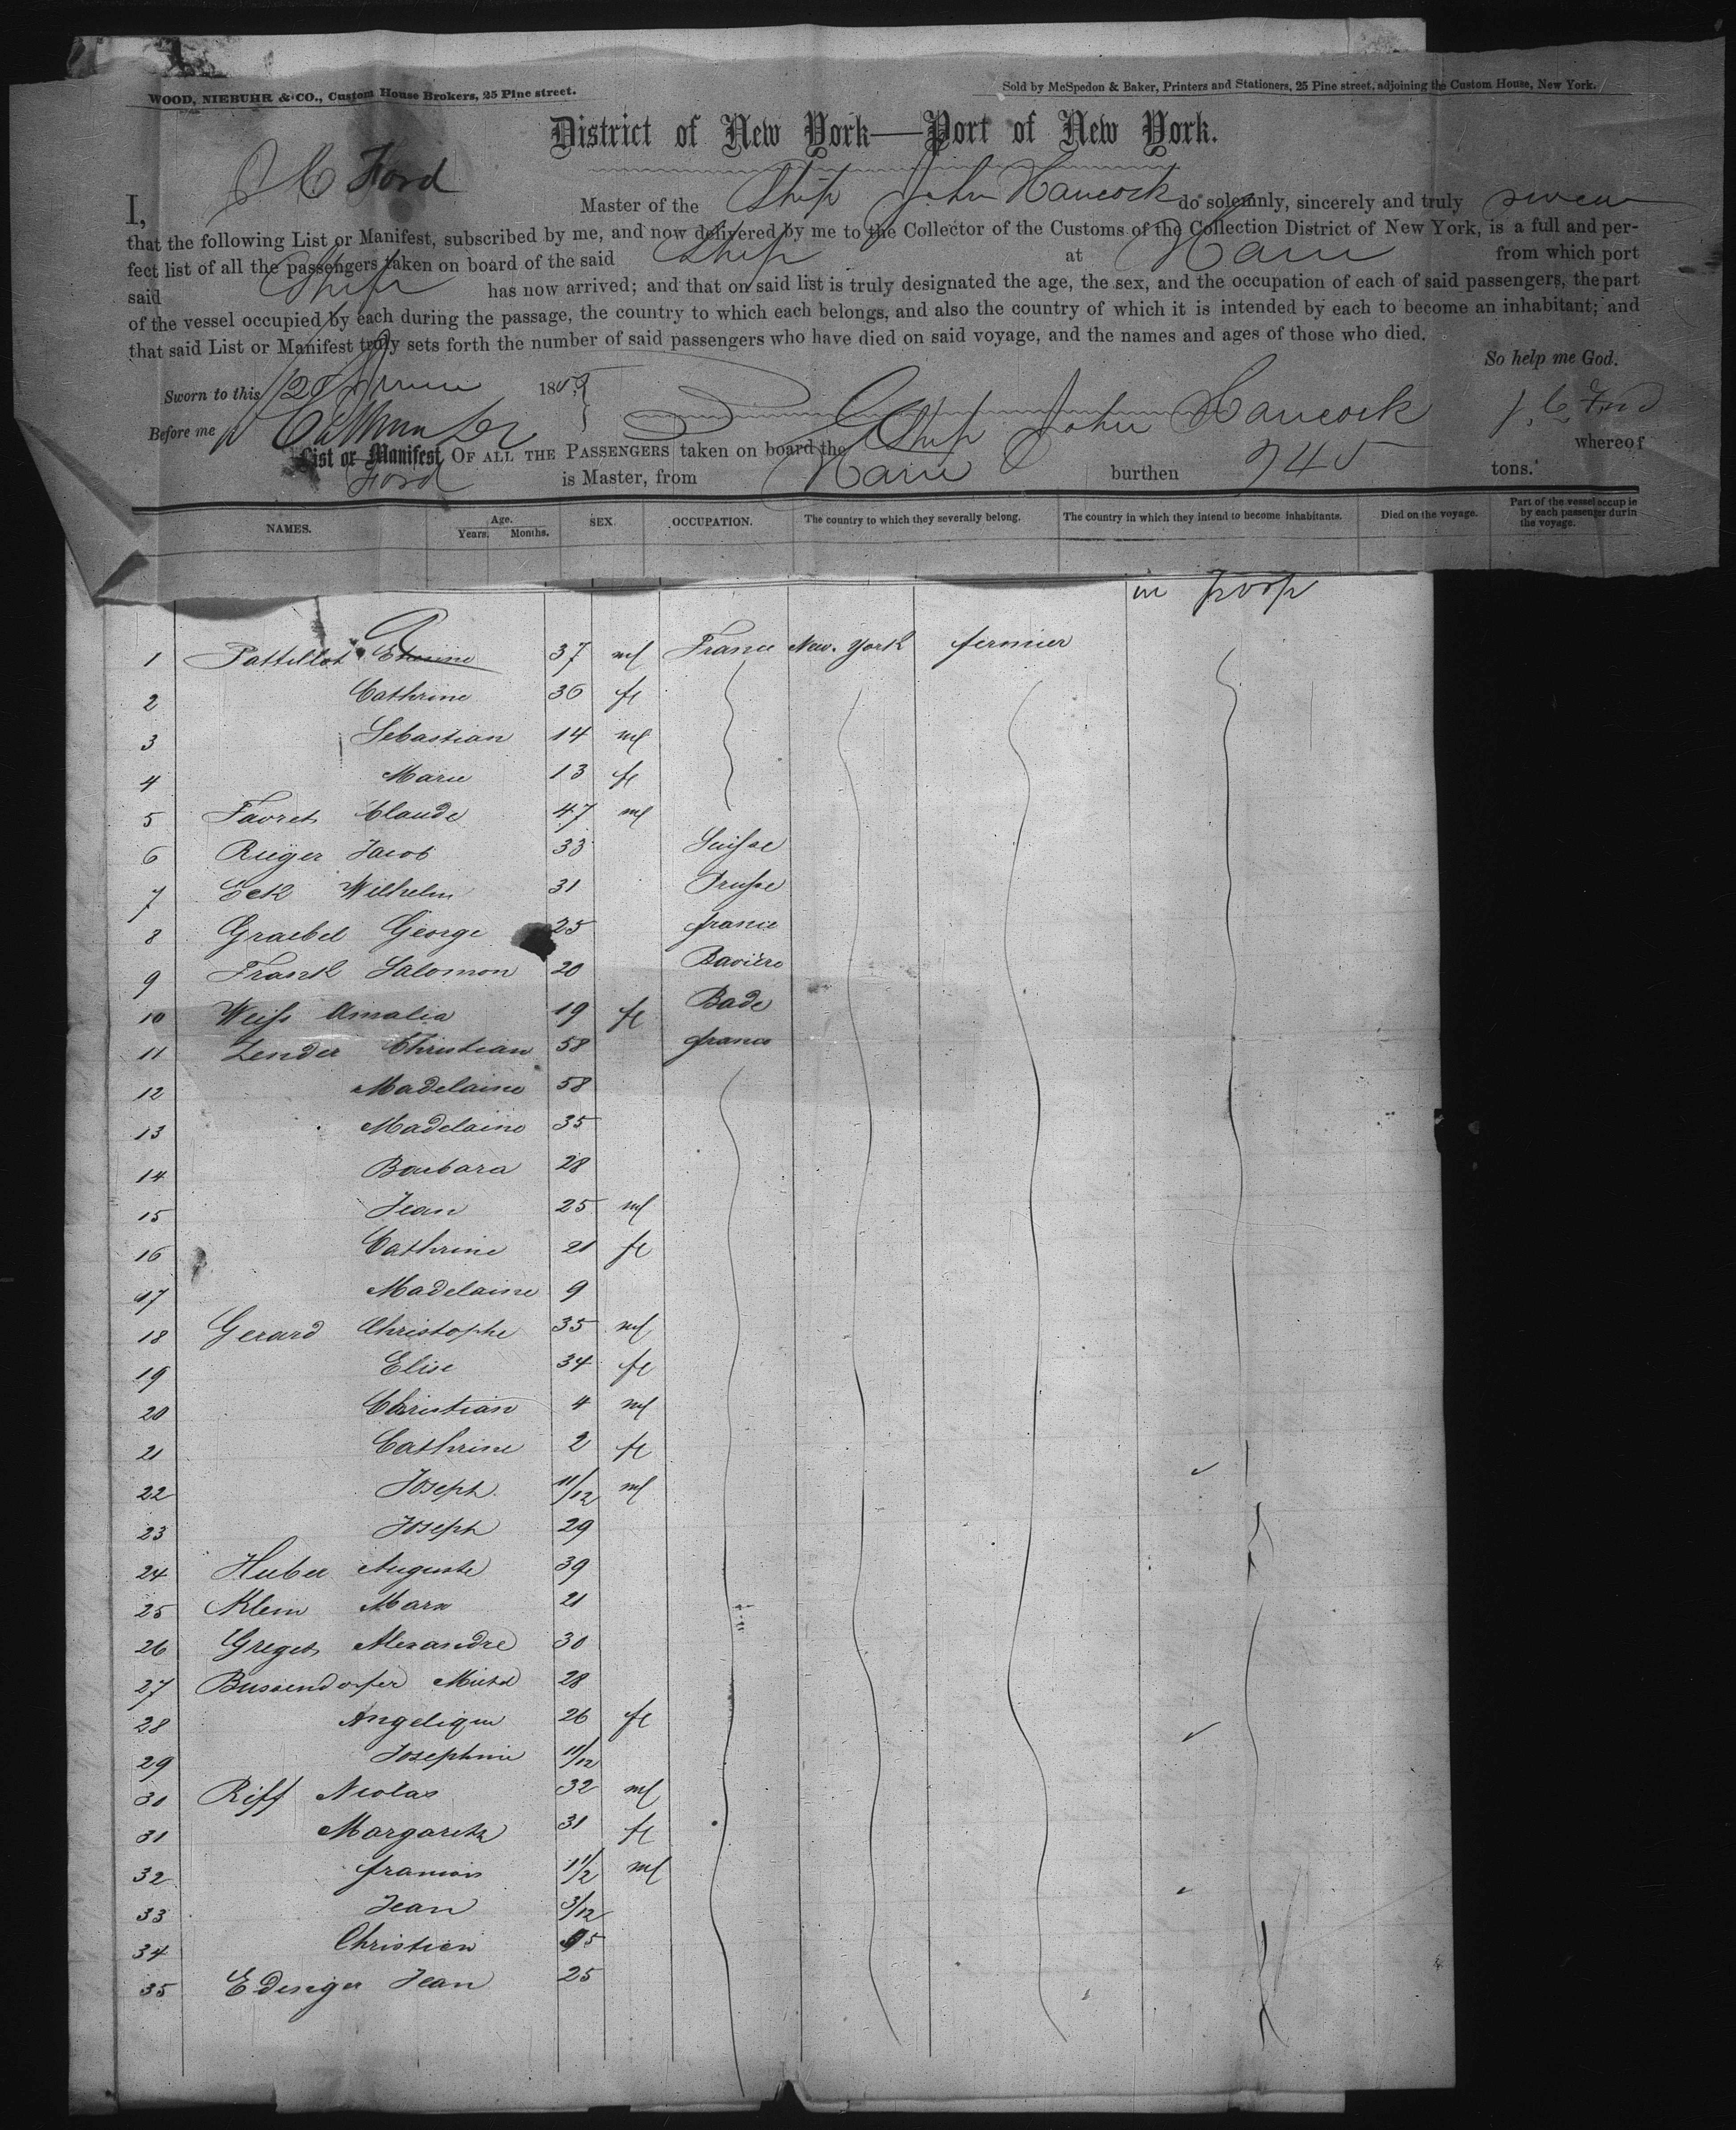 WOOD, NIEBUHR & CO., Custom House Brokers, 25 Pine street.
Sold by McSpedon & Baker, Printers and Stationers, 25 Pine street, adjoining the Custom House, New York.
District of New York—Port of New York.
I, J C Ford Master of the Ship John Hancock do solemnly, sincerely and truly swear
that the following List or Manifest, subscribed by me, and now delivered by me to the Collector of the Customs of the Collection District of New York, is a full and per-
fect list of all the passengers taken on board of the said Ship at Havre from which port
said Ship has now arrived; and that on said list is truly designated the age, the sex, and the occupation of each of said passengers, the part
of the vessel occupied by each during the passage, the country to which each belongs, and also the country of which it is intended by each to become an inhabitant; and
that said List or Manifest truly sets forth the number of said passengers who have died on said voyage, and the names and ages of those who died.
So help me God.
Sworn to this 185
Before me J. C. Ford
List or Manifest OF ALL THE PASSENGERS taken on board the Ship John Hancock whereof
Ford is Master, from Havre burthen 745 tons.
NAMES. Age. Years. Months. SEX. OCCUPATION. The country to which they severally belong. The country in which they intend to become inhabitants. Died on the voyage. Part of the vessel occupie by each passenger durin the voyage.
in poop
1 Pattillot Etienne 37 ml France New-York fermier
2 Cathrine 36 fl
3 Sebastian 14 ml
4 Marie 13 fl
5 Favret Claude 47 ml
6 Rieger Jacob 33 Suisse
7 Eck Wilhelm 31 Prusse
8 Graebel George 25 france
9 Frank Salomon 20 Bavière
10 Weiss Amalia 19 fl Bade
11 Zender Christian 58 france
12 Madelaine 58
13 Madelaine 35
14 Barbara 28
15 Jean 25 ml
16 Cathrine 21 fl
17 Madelaine 9
18 Gerard Christophe 35 ml
19 Elise 34 fl
20 Christian 4 ml
21 Cathrine 2 fl
22 Joseph 11/12 ml
23 Joseph 29
24 Huber Auguste 39
25 Klein Marx 21
26 Greget Alexandre 30
27 Bussendorfer Michel 28
28 Angelique 26 fl
29 Josephine 11/12
30 Riff Nicolas 32 ml
31 Margareth 31 fl
32 francois 1 1/2 ml
33 Jean 3/12
34 Christien
35 Edinger Jean 25